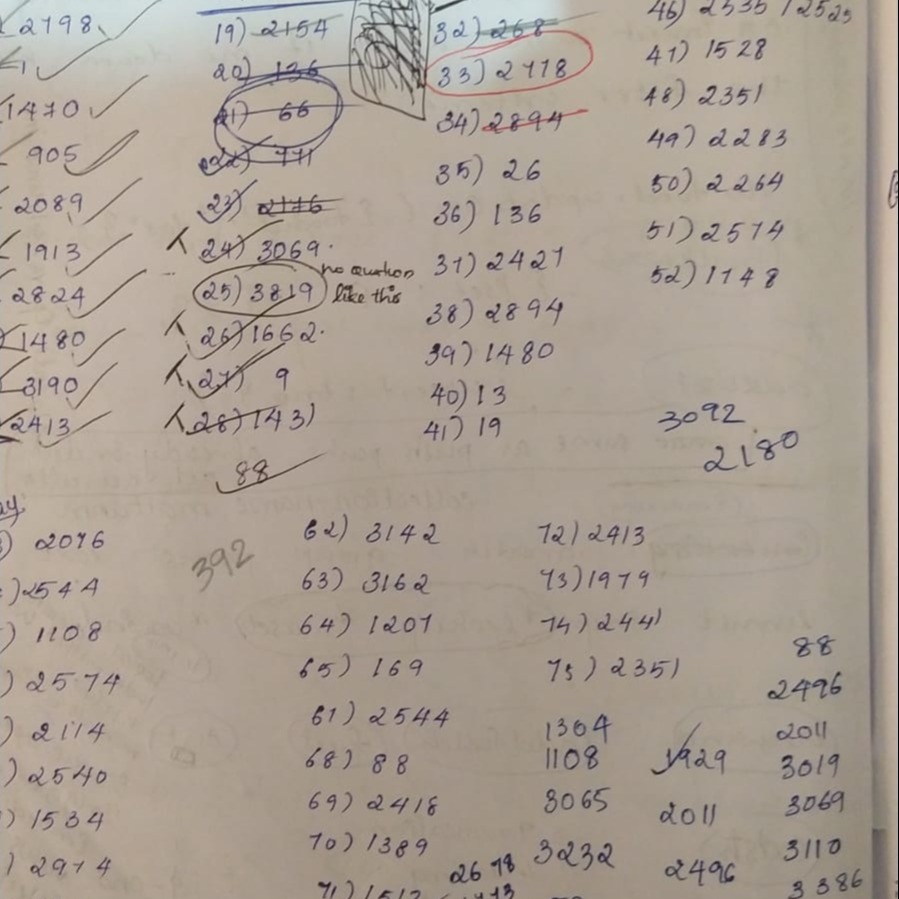 2798
1
1470
905
2089
1913
2824
1480
3190
2413
19) 2154
20) 136
21) 66
22) 771
23) 2146
24) 3069.
25) 3819
no question
like this
26) 1662.
27) 9
28) 1431
88
32) 268
33) 2778
34) 2894
35) 26
36) 136
37) 2427
38) 2894
39) 1480
40) 13
41) 19
46) 2535 / 2525
47) 1528
48) 2351
49) 2283
50) 2264
51) 2574
52) 1748
3092
2180
2076
)2544
) 1108
) 2574
) 2114
) 2540
) 1534
) 2974
392
62) 3142
63) 3162
64) 1207
65) 169
67) 2544
68) 88
69) 2418
70) 1389
72) 2413
73) 1979
74) 2441
75) 2351
1304
1108
3065
3232
2678
1929
2011
2496
88
2496
2011
3019
3069
3110
3386